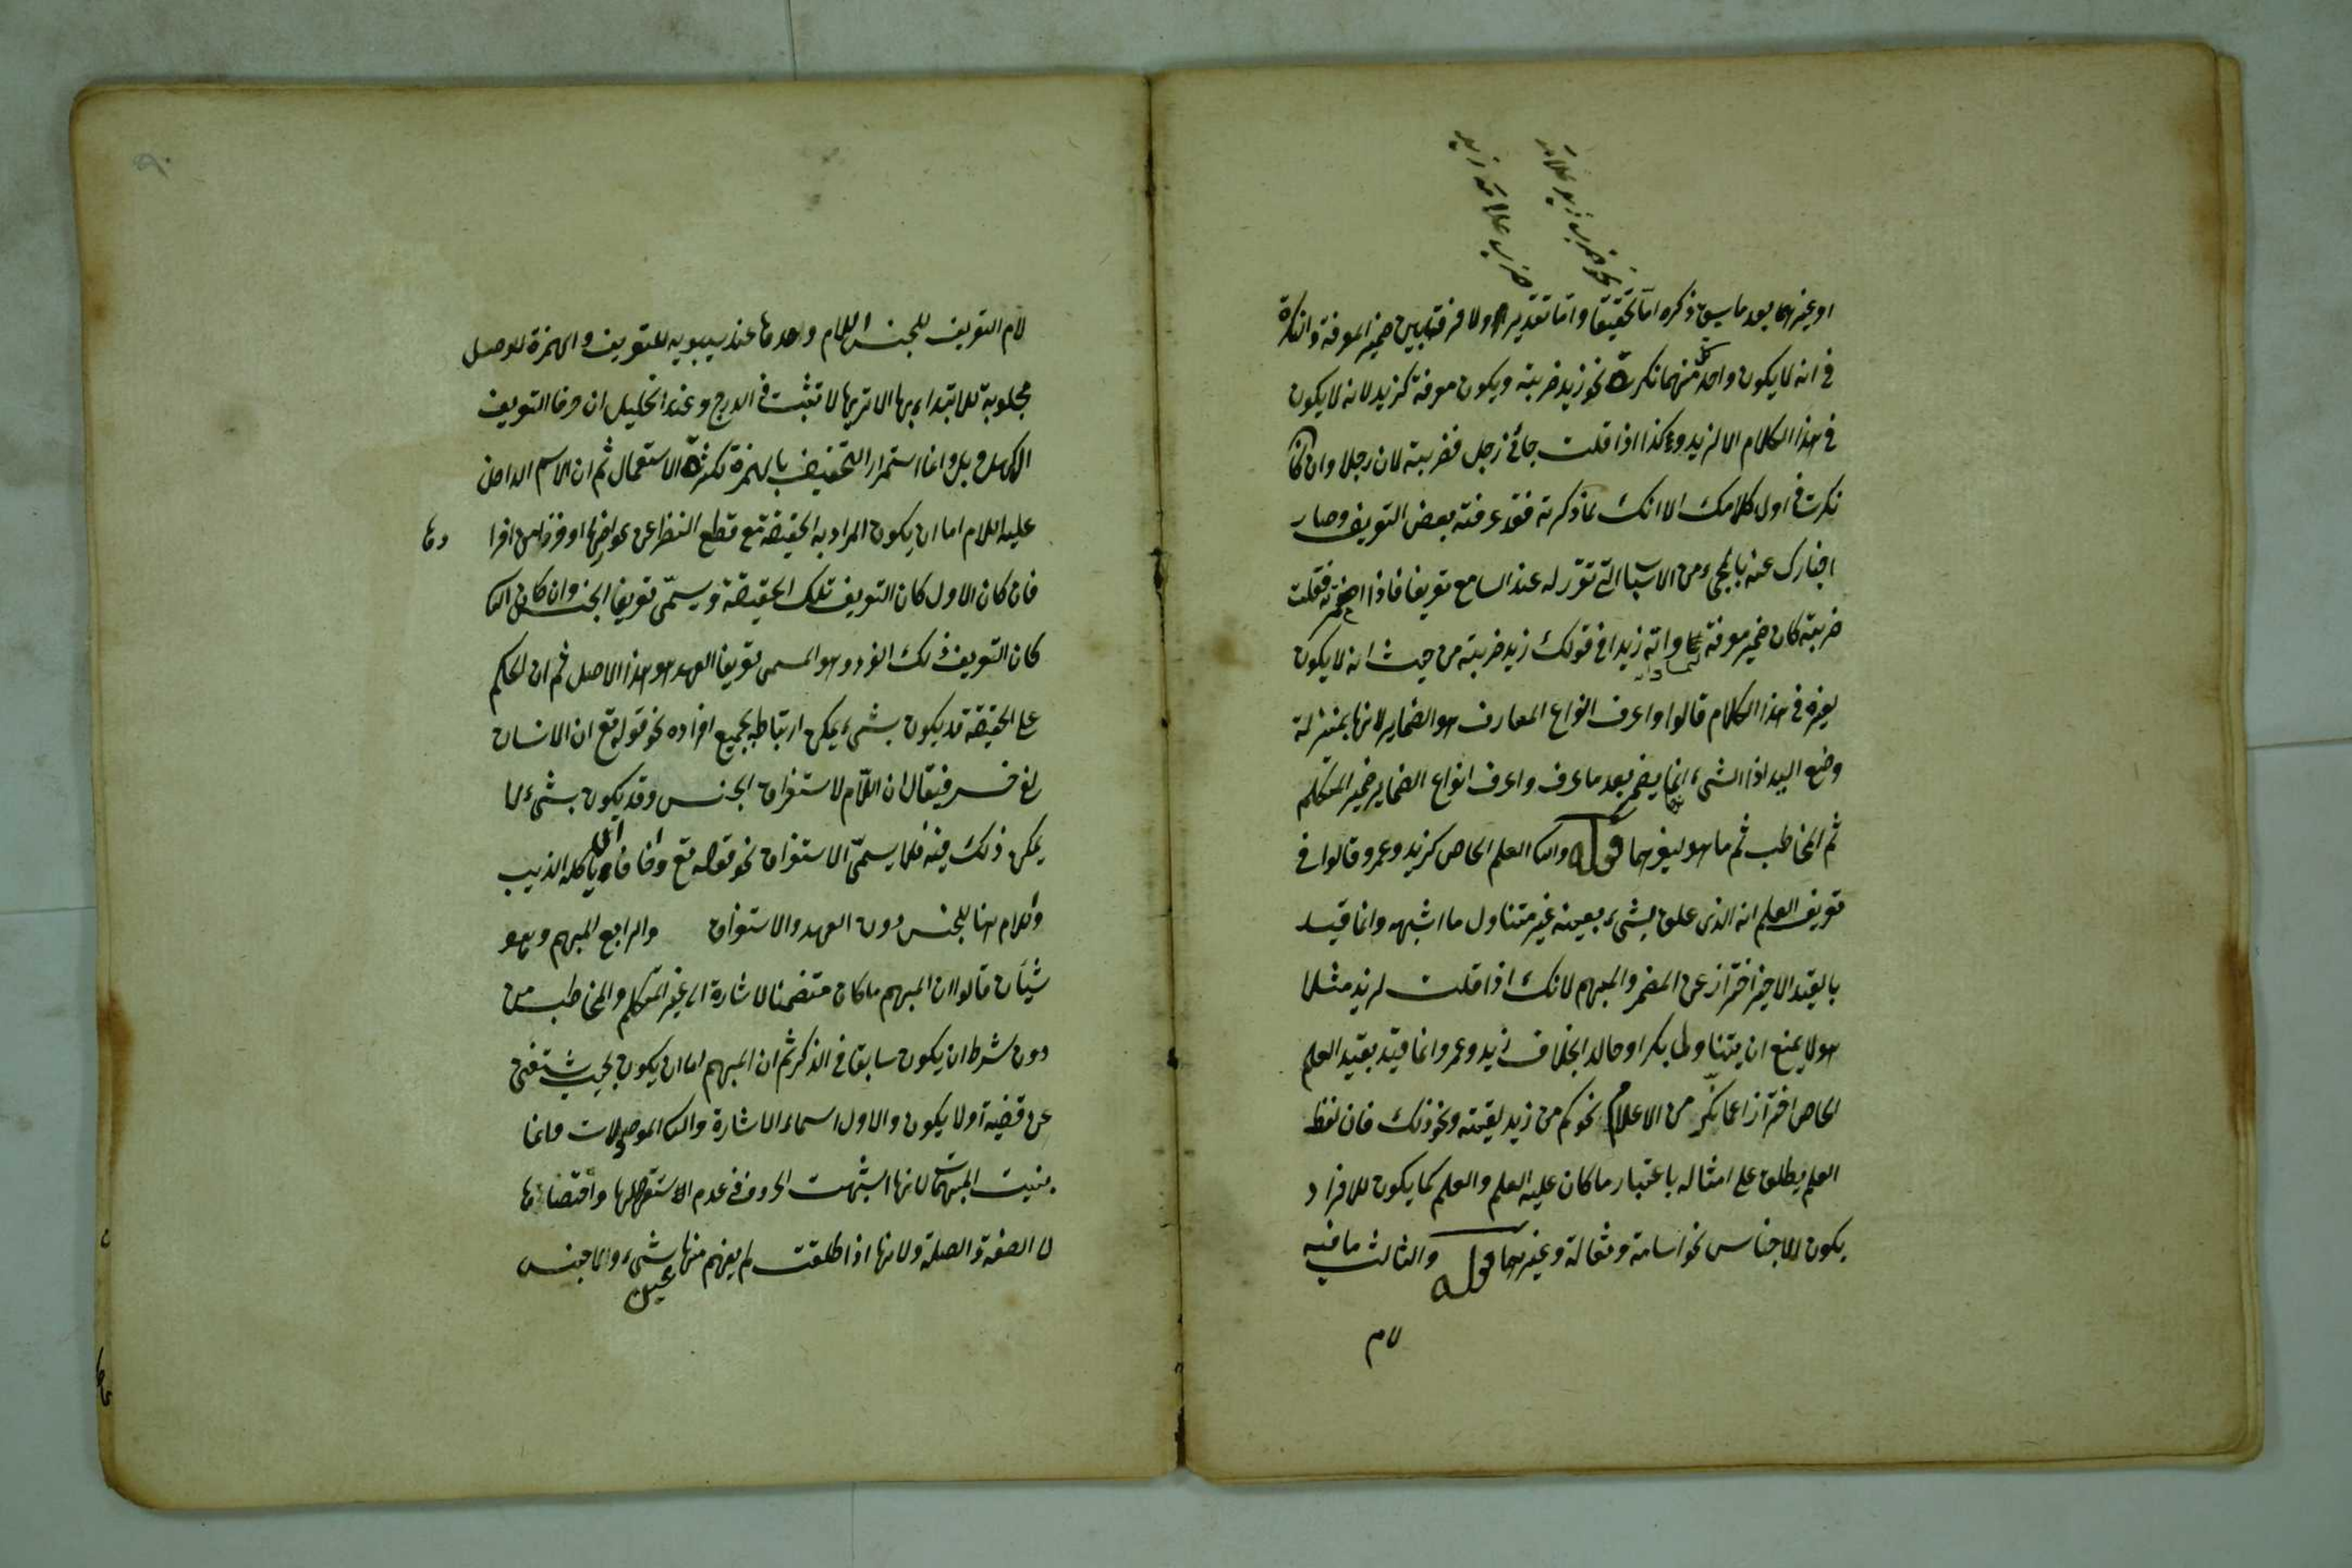 نحو ضرب زيد غلامه
ضرب غلامه زيد
او غيرهما بعد ما سبق ذكره اما تحقيقا واما تقديرا ولا فرق بين ضمير المعرفة والنكرة
في انه لا يكون واحد منهما نكرة نحو زيد ضربته ويكون معرفة كزيد لانه لا يكون
في هذا الكلام الا لزيد وكذا اذا قلت جائني رجل فضربته لان رجلا وان كان
نكرت في اول كلامك الا انك لما ذكرته فقد عرفته بعض التعريف وصار
اخبارك عنه بالمجيء من الاسباب التي تقرر له عند السامع تعريفا فاذا اضمرته فقلت
ضربته كان ضمير معرفة وانه زيدا في قولك زيد ضربته من حيث انه لا يكون
لغيره في هذا الكلام قالوا واعرف انواع المعارف هو الضماير لانها بمنزلة
وضع اليد اذا الشيء انما يضمر بعد ما عرف واعرف انواع الضماير ضمير المتكلم
ثم المخاطب ثم ما هو لغيرهما قوله والثا العلم الخاص كزيد وعمرو قالوا في
تعريف العلم انه الذي علق بشيء بعينه غير متناول ما اشبهه وانما قيد
بالقيد الاخير احترازا عن المضمر والمبهم لانك اذا قلت لزيد مثلا
هو لا يمنع ان يتناولها بكرا او خالد بخلاف زيد وعمرو وانما قيد بقيد العلم
الخاص احترازا عما نكر من الاعلام نحو كم من زيد لقيته ونحو ذلك فان لفظ
العلم يطلق على امثاله باعتبار ما كان عليه العلم والعلم كما يكون للافراد
يكون للاجناس نحو اسامة وثعالة وغيرهما قوله والثالث ما فيه
لام
لام التعريف للجنس اللام وحدها عند سيبويه للتعريف والهمزة للوصل
مجلوبة للابتداء بها الا تريها لا تثبت في الدرج وعند الخليل ان حرفا التعريف
ال كهل وبل وانما استمرار التخفيف بالهمزة لكثرة الاستعمال ثم ان الاسم الداخل
عليه اللام اما ان يكون المراد به الحقيقة مع قطع النظر عن عوارضها او فرد من افرا دها
فان كان الاول كان التعريف تلك الحقيقة ويسمى تعريف الجنس وان كان الثا
كان التعريف ذلك الفرد وهو المسمى تعريف العهد هو هذا الاصل ثم ان الحكم
على الحقيقة قد يكون بشيء يمكن ارتباطه بجميع افراده نحو قوله تع ان الانسان
لفي خسر فيقال ان اللام لاستغراق الجنس وقد يكون بشيء لا
يمكن ذلك فيه فلا يسمى الاستغراق نحو قوله تع واخاف ان ياكله الذيب
واللام هنا للجنس دون العهد والاستغراق والرابع المبهم وهو
شيأن قالوا ان المبهم ما كان متضمنا لاشارة الى غير المتكلم والمخاطب من
دون شرط ان يكون سابقا في الذكر ثم ان المبهم اما ان يكون بحيث يستغنى
عن قضية اولا يكون والاول اسماء الاشارة والثا الموصولات وانما
بنيت المبهمات لانها اشبهت الحروف في عدم الاستقلالها واقتضائها
لا الصفة والصلة ولانها اذا اطلقت لم يفهم منها شيء والا جنس